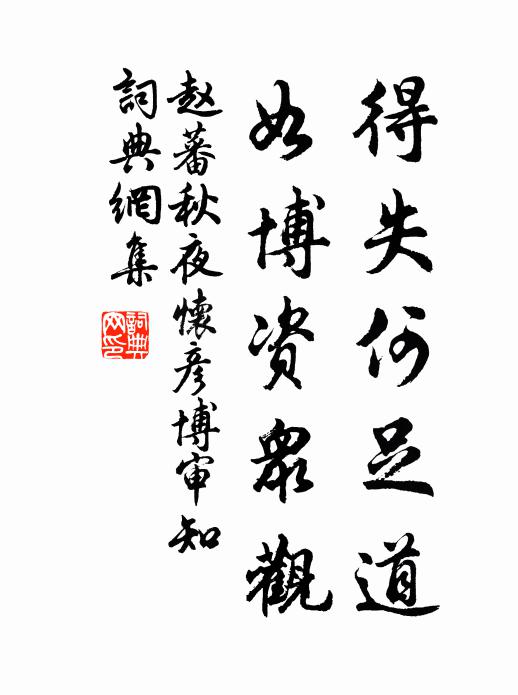 得失何足道
如博资眾觀
赵蕃秋夜懷彦博审知
詞典網集
詞典网印